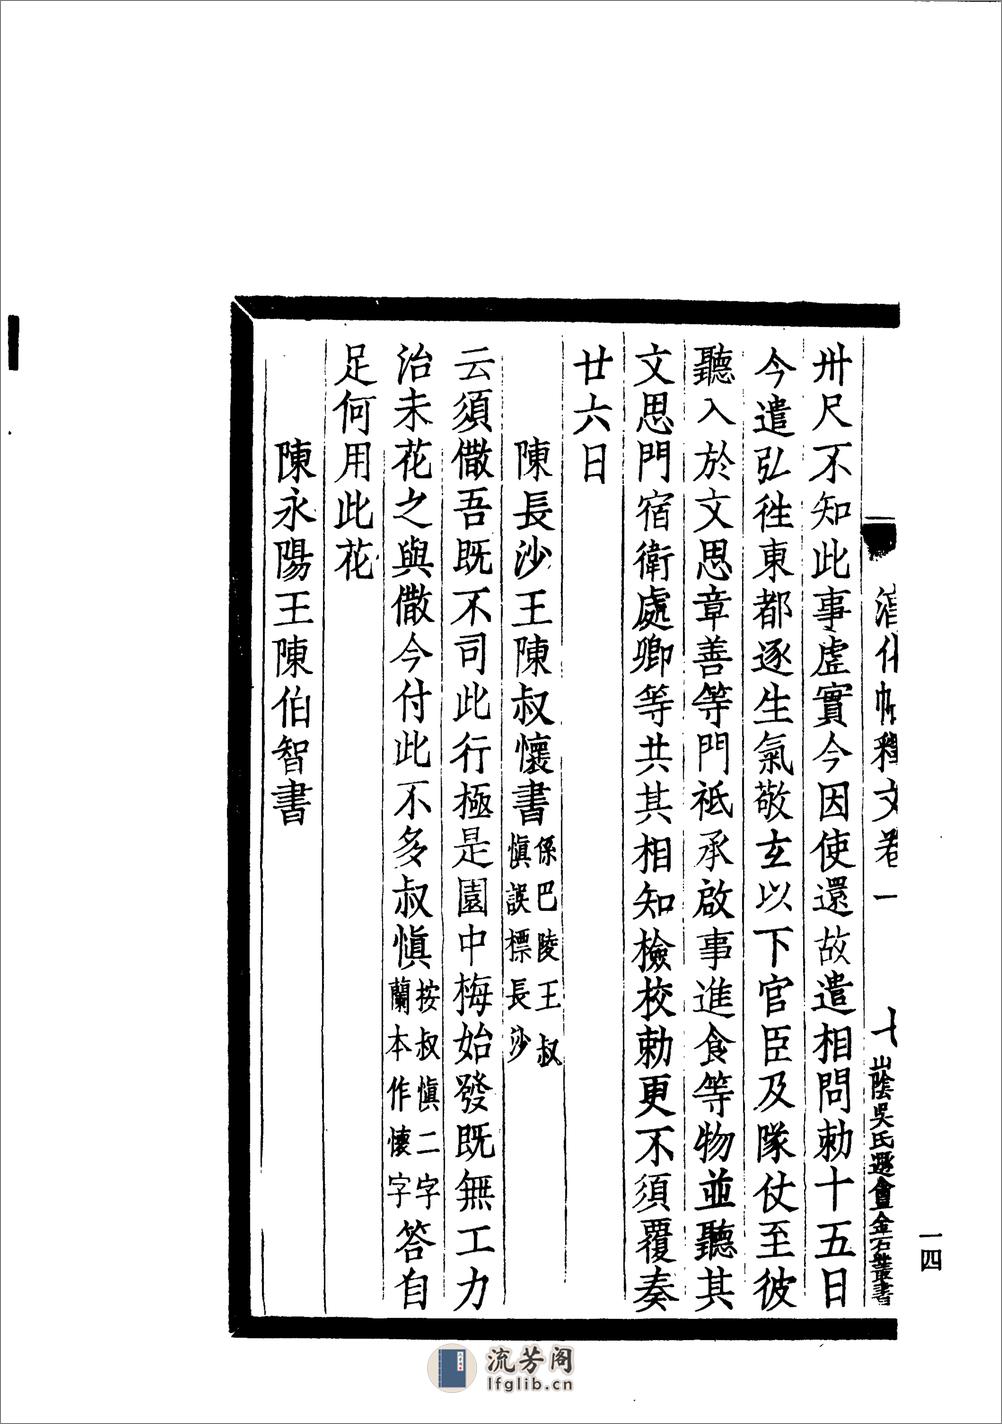 淳化帖釋文卷一
七
山陰吳氏遯盦金石叢書
一四
卅尺不知此事虛實今因使還故遣相問勅十五日
今遣弘徃東都逐生氣敬玄以下官臣及隊仗至彼
聽入於文思章善等門祗承啟事進食等物並聽其
文思門宿衛處卿等共其相知檢校勅更不須覆奏
廿六日
陳長沙王陳叔懷書係巴陵王叔慎誤標長沙
云須儆吾既不司此行極是園中梅始發既無工力
治未花之與儆今付此不多叔慎按叔慎二字蘭本作懷字答自
足何用此花
陳永陽王陳伯智書
流芳阁
lfglib.cn